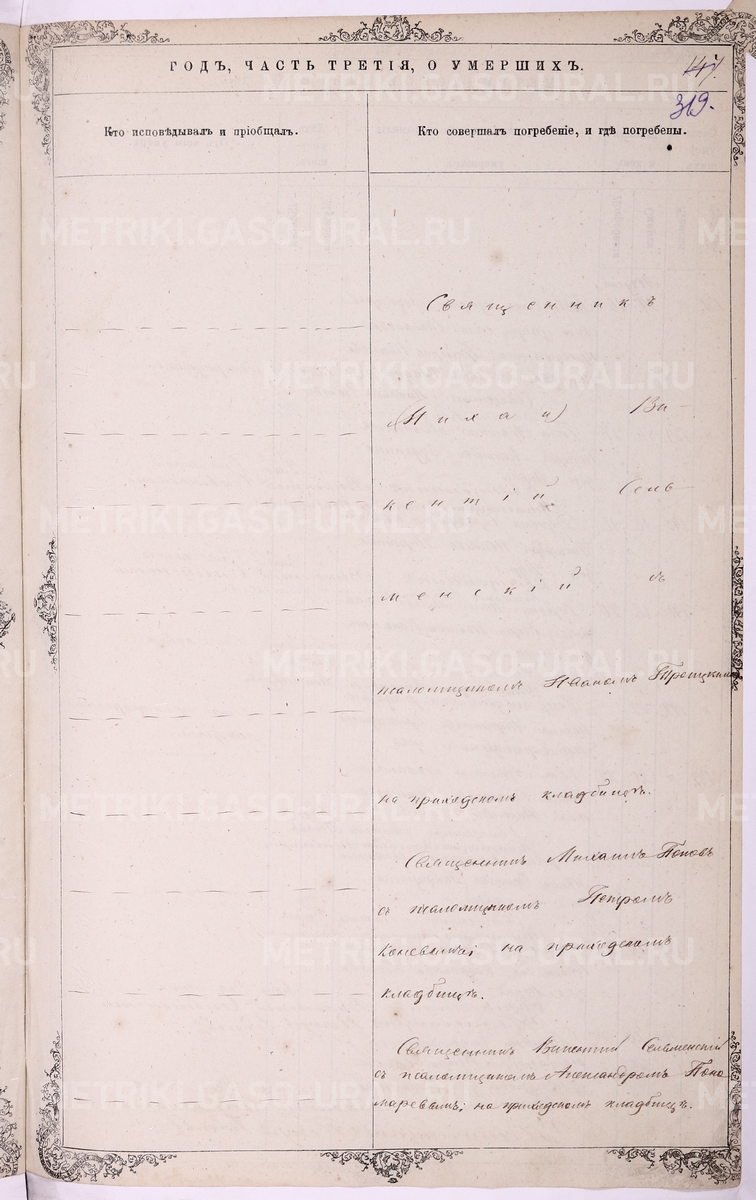 ГОДЪ, ЧАСТЬ ТРЕТІЯ, О УМЕРШИХЪ.
147.
319.
Кто исповѣдывалъ и пріобщалъ.
Кто совершалъ погребеніе, и гдѣ погребены.
METRIKI.GASO-URAL.RU
Священникъ
(Михаи) Ви-
кентій Сель-
менскій съ
псаломщикомъ Иваномъ Троицкимъ
на приходскомъ кладбищѣ.
Священникъ Михаилъ Поповъ
съ псаломщикомъ Петромъ
на приходскомъ
кладбищѣ.
Священникъ Викентій Сельменскій
съ псаломщикомъ Александромъ Поно
маревымъ; на приходскомъ кладбищѣ.